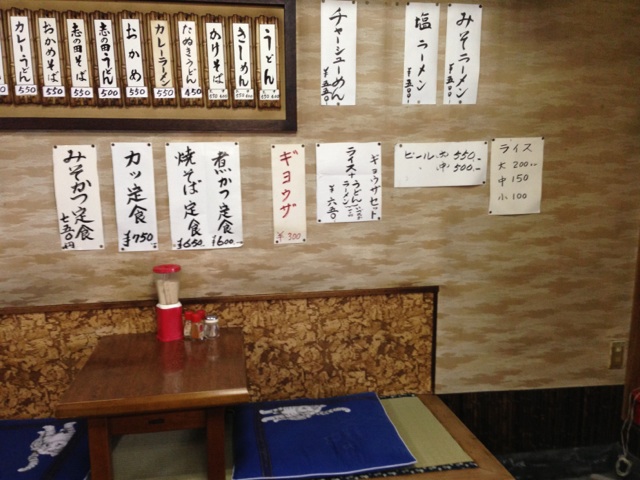 うどん
きしめん
かけそば
たぬきうどん
450
カレーラーメン
550
おかめ
550
志の田うどん
550
志の田そば
550
おかめそば
550
カレーうどん
550
みそラーメン
塩ラーメン
チャーシューめん
ライス
大 200
中 150
小 100
ビール 大 550
中 500
ギョウザセット
ライス+うどん
ラーメン
¥650
ギヨウザ
¥300
煮かつ定食
¥600
焼そば定食
¥650
カツ定食
¥750
みそかつ定食
七五〇円